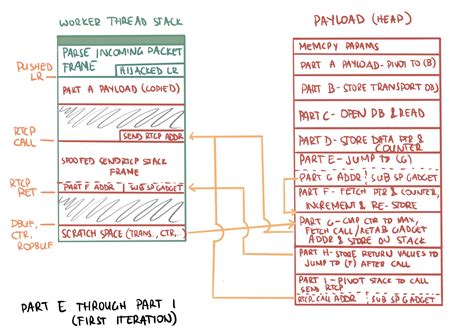 WORKER THREAD STACK
PARSE INCOMING PACKET
FRAME
HIJACKED LR
PUSHED
LR
PART A PAYLOAD (COPIED)
SEND RTCP ADDR
RTCP
CALL
SPOOFED SENDRTCP STACK
FRAME
RTCP
RET
PART F ADDR
SUB SP GADGET
DBUF,
CTR,
ROPBUF
SCRATCH SPACE (TRANS., CTR,...)
PART E THROUGH PART I
(FIRST ITERATION)
PAYLOAD (HEAP)
MEMCPY PARAMS
PART A PAYLOAD-PIVOT TO (B)
PART B- STORE TRANSPORT OBJ
PART C- OPEN DB & READ
PART D- STORE DATA PTR &
COUNTER
PART E- JUMP TO (G)
PART G ADDR
SUB SP GADGET
PART F - FETCH PTR & COUNTER,
INCREMENT & RE-STORE
PART G-CMP CTR TO MAX,
FETCH CALL/RETAB GADGET
ADDR & STORE ON STACK
PART H- STORE RETURN VALUES TO
JUMP TO (F) AFTER CALL
PART I-PIVOT STACK TO CALL
SEND RTCP
RTCP CALL ADDR
SUB SP GADGET